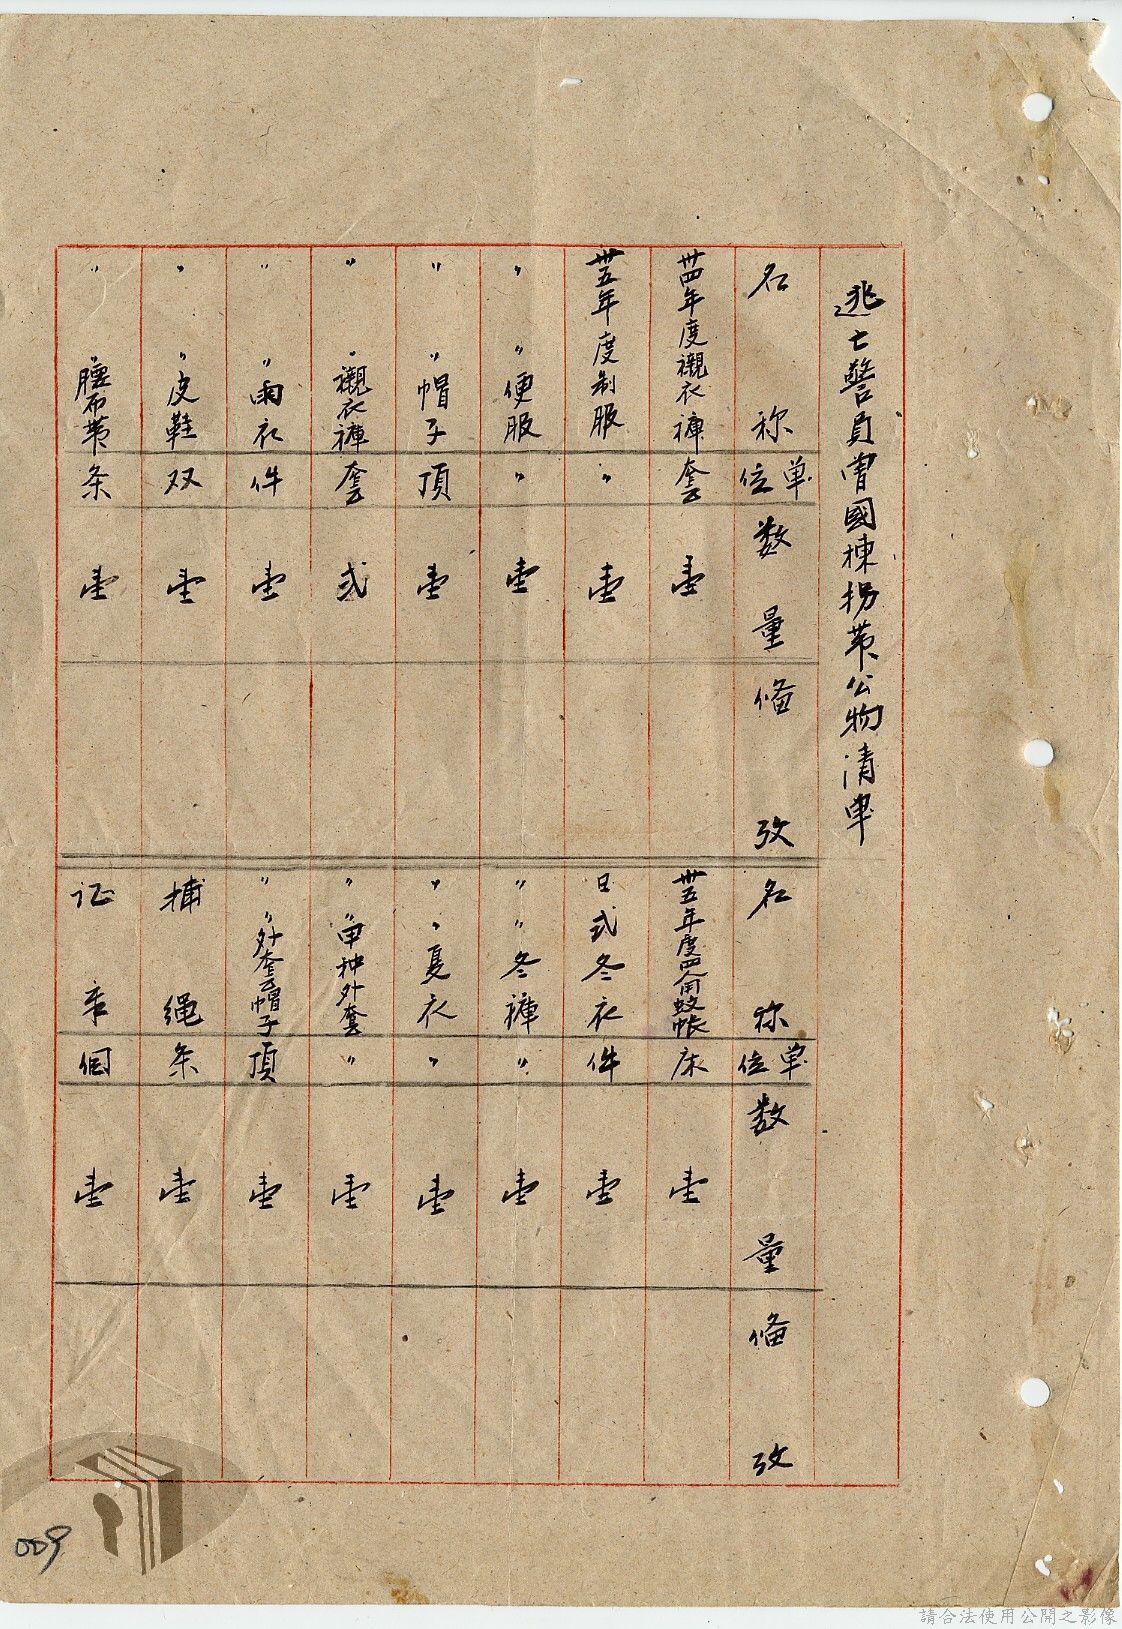 逃亡警員曾國棟拐帶公物清單
名称 單位 数量 俻攷 名称 單位 数量 俻攷
卅四年度襯衣褲 套 壹 卅五年度四人用蚊帐 床 壹
卅五年度制服 〃 壹 日式冬衣 件 壹
〃 〃便服 〃 壹 〃 〃冬褲 〃 壹
〃 〃帽子 頂 壹 〃 〃夏衣 〃 壹
〃 〃襯衣褲 套 弍 〃 〃甲种外套 〃 壹
〃 〃雨衣 件 壹 〃 〃外套帽子 頂 壹
〃 〃皮鞋 双 壹 捕绳 条 壹
〃 〃腰布帶 条 壹 证章 個 壹
009
請合法使用公開之影像